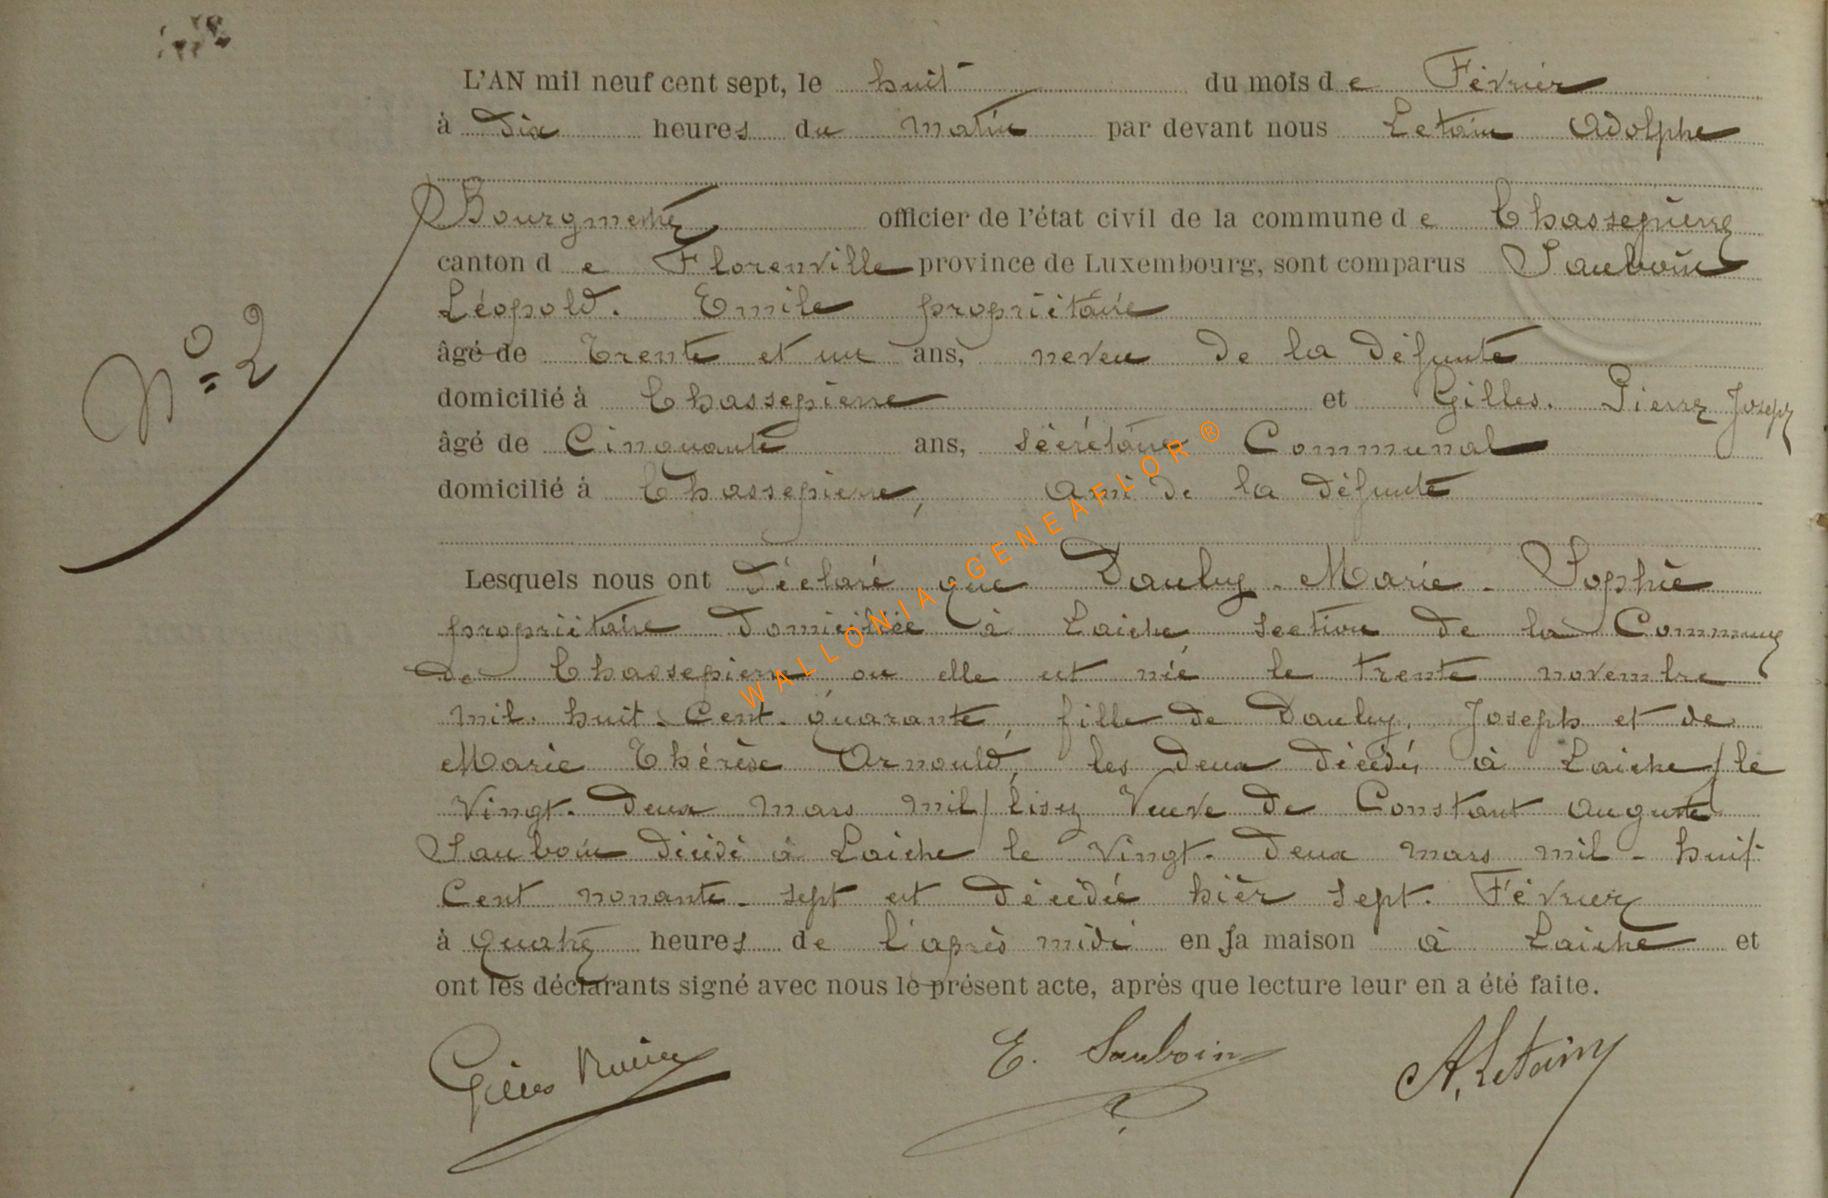 L'AN mil neuf cent sept, le huit du mois de Février
à dix heures du matin par devant nous Letain Adolphe
Bourgmestre officier de l'état civil de la commune de Chassepierre
canton de Florenville province de Luxembourg, sont comparus Sauboin
Léopold. Emile propriétaire
âgé de Trente et un ans, neveu de la défunte
domicilié à Chassepierre et Gilles. Pierre Joseph
âgé de Cinquante ans, Sécrétaire Communal
domicilié à Chassepierre, ami de la défunte
Lesquels nous ont déclaré que Dauby - Marie - Sophie
propriétaire domiciliée à Laiche section de la Commune
de Chassepierre ou elle est née le trente novembre
mil. huit. Cent. quarante, fille de Dauby. Joseph et de
Marie Thérèse Arnould, les deux décédés à Laiche / le
Vingt. deux mars mil / lisez Veuve de Constant Auguste
Sauboin décédé à Laiche le Vingt. deux mars mil - huit
Cent nonante - sept est décédée hièr sept. Février
à quatre heures de l'après midi en sa maison à Laiche et
ont les déclarants signé avec nous le présent acte, après que lecture leur en a été faite.
Gilles E. Sauboin A. Letain
N° 2
WALLONIA-GENEAFLOR ®